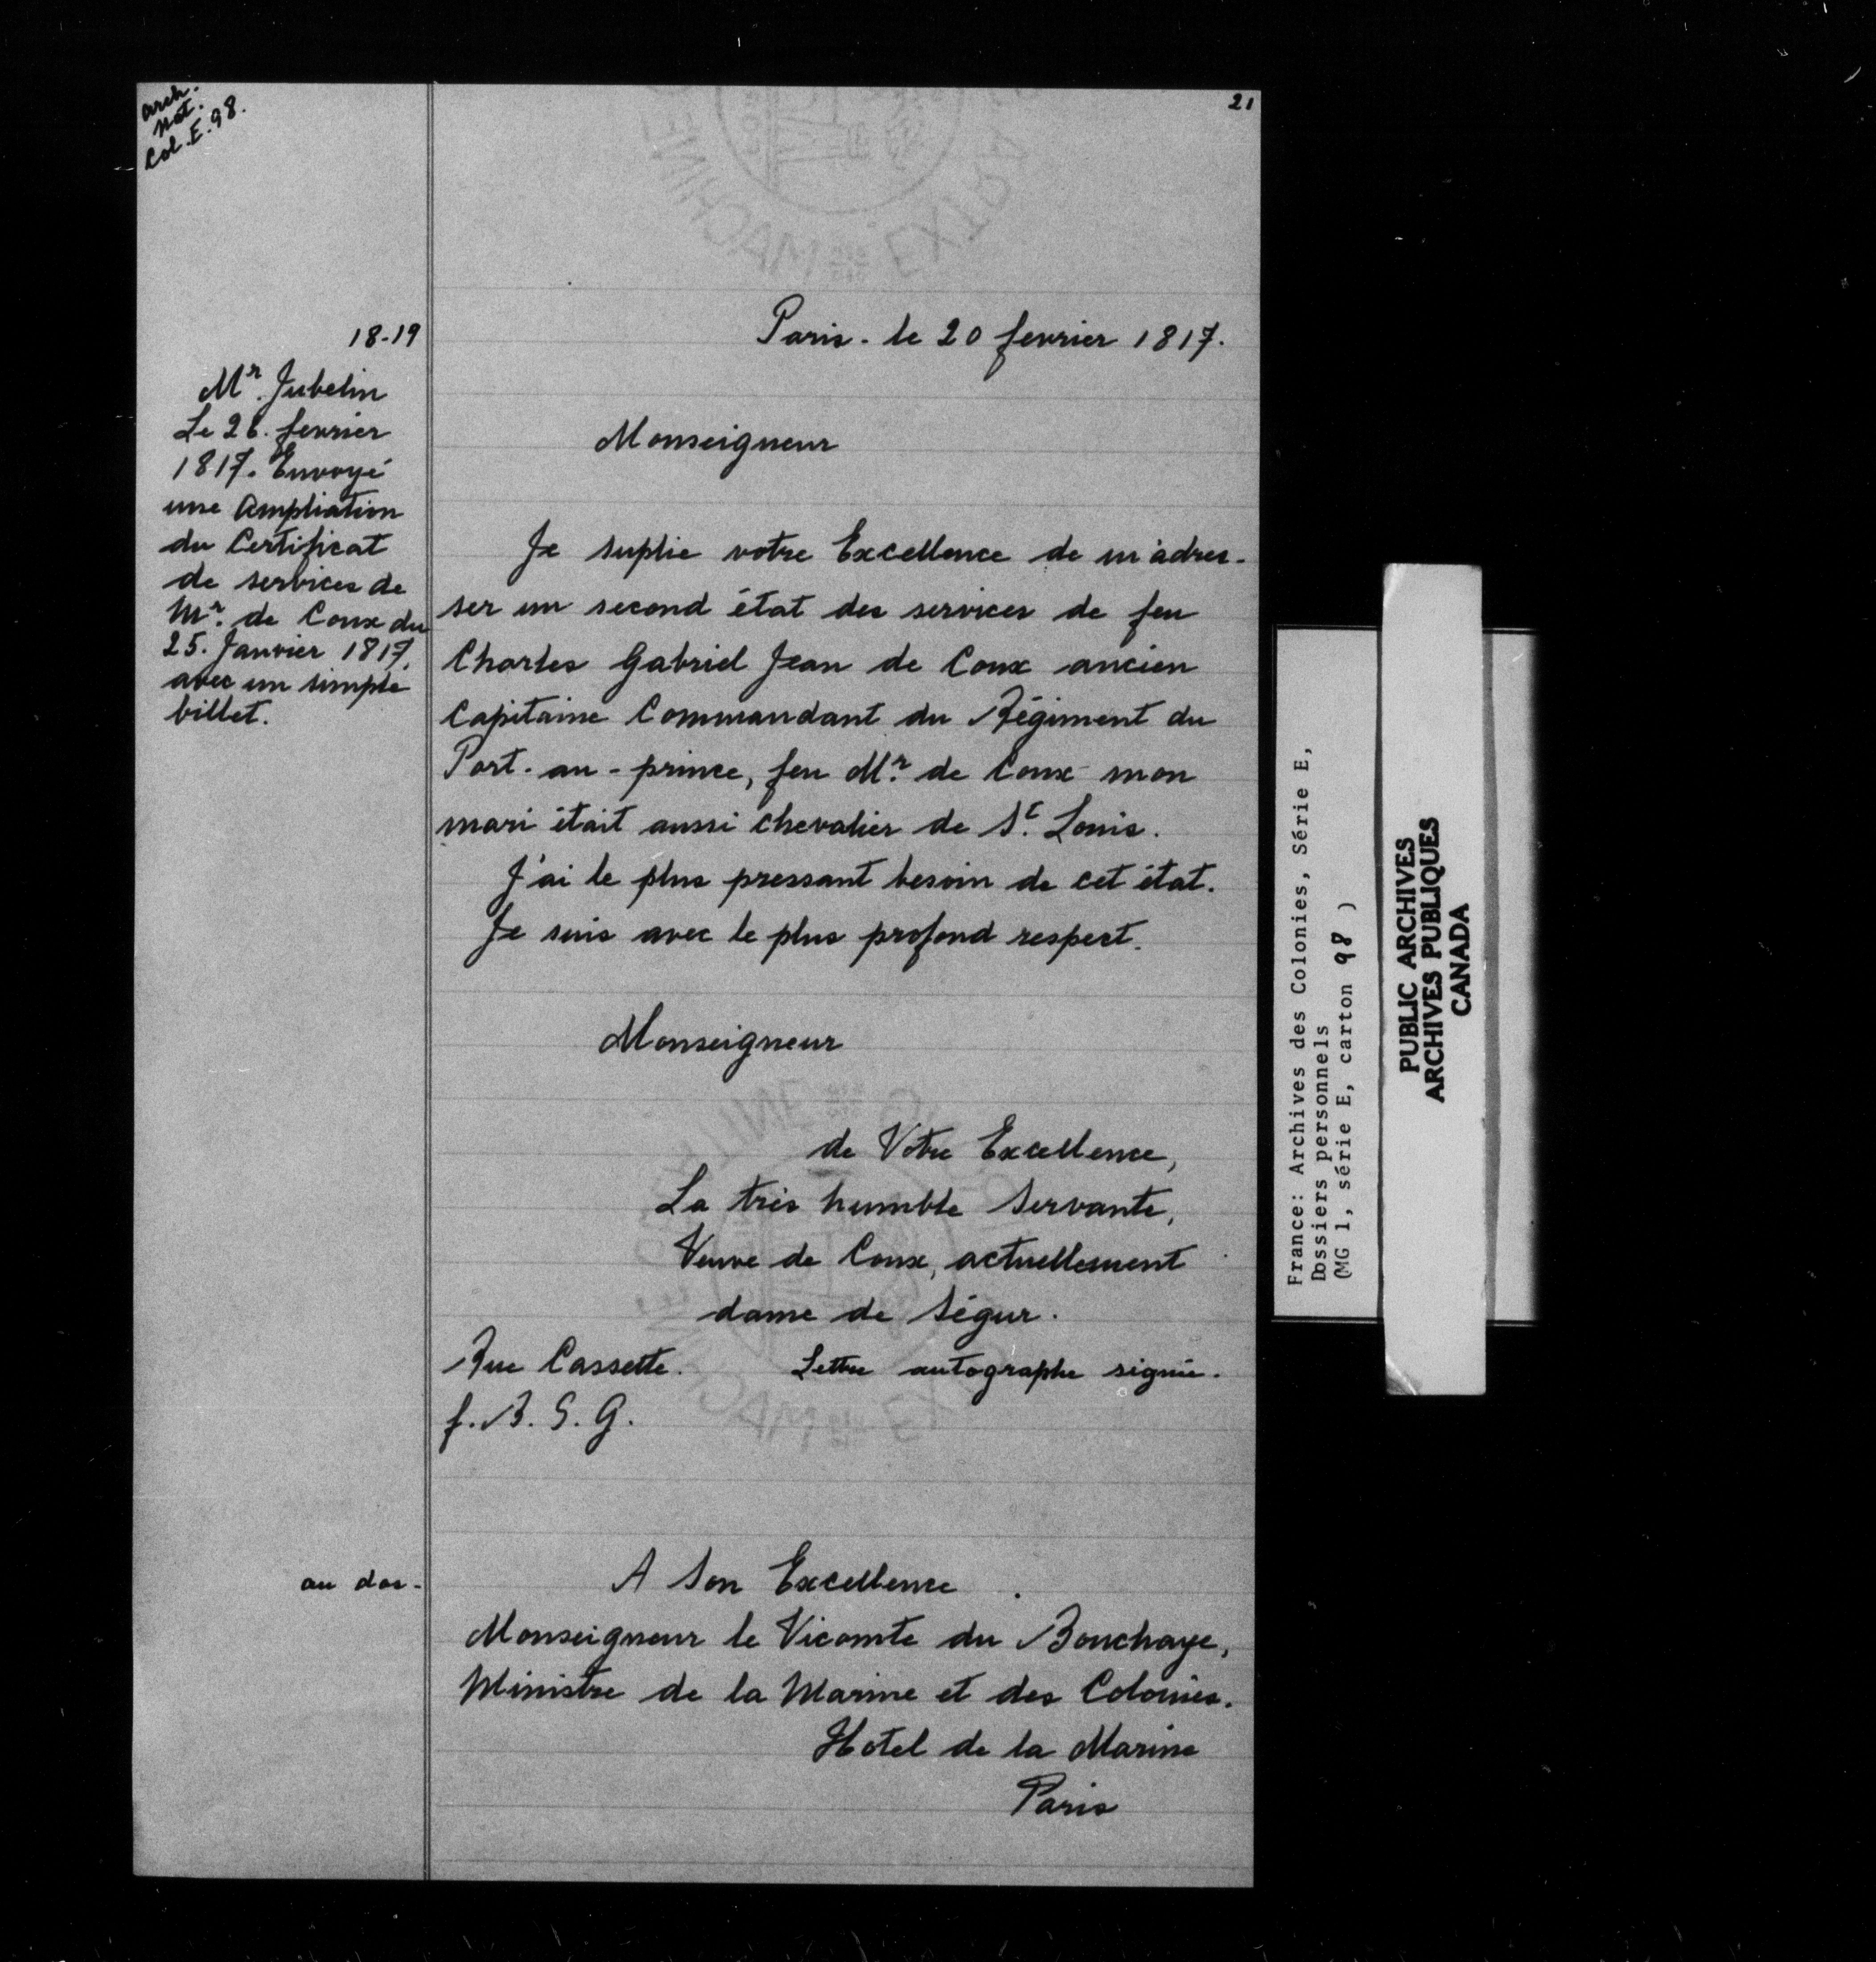 arch.
nat.
Col. E. 98.
21
18-19
Mr. Jubelin
Le 26. fevrier
1817. Envoyé
une Ampliation
du Certificat
de services de
Mr. de Coux du
25. Janvier 1817,
avec un simple
billet.
Paris. le 20 fevrier 1817.
Monseigneur
Je suplie votre Excellence de m'adres-
ser un second état des services de feu
Charles Gabriel Jean de Coux ancien
Capitaine Commandant du Régiment du
Port-au-prince, feu Mr. de Coux mon
mari était aussi chevalier de St. Louis.
J'ai le plus pressant besoin de cet état.
Je suis avec le plus profond respect.
Monseigneur
de Votre Excellence,
La très humble Servante,
Veuve de Coux, actuellement
dame de Ségur.
Rue Cassette. Lettre autographe signée.
f. B. S. G.
au dos-
A Son Excellence
Monseigneur le Vicomte du Bouchaye,
Ministre de la Marine et des Colonies.
Hotel de la Marine
Paris
France: Archives des Colonies, Série E,
Dossiers personnels
(MG 1, série E, carton 98 )
PUBLIC ARCHIVES
ARCHIVES PUBLIQUES
CANADA